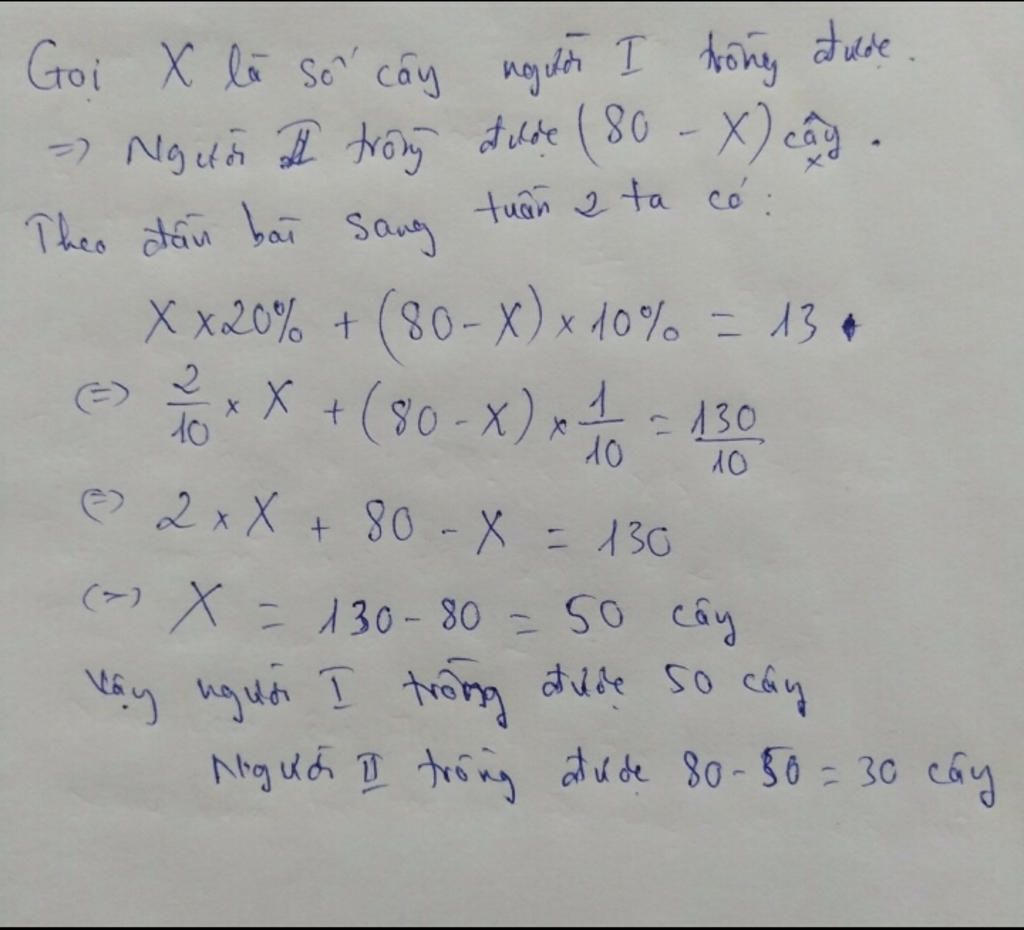 Gọi X là số cây người I trồng được.
=> Người II trồng được (80 - X) cây.
Theo đầu bài sang tuần 2 ta có:
X x 20% + (80 - X) x 10% = 13
(=) 2/10 x X + (80 - X) x 1/10 = 130/10
(=) 2 x X + 80 - X = 130
(=) X = 130 - 80 = 50 cây
Vậy người I trồng được 50 cây
Người II trồng được 80 - 50 = 30 cây